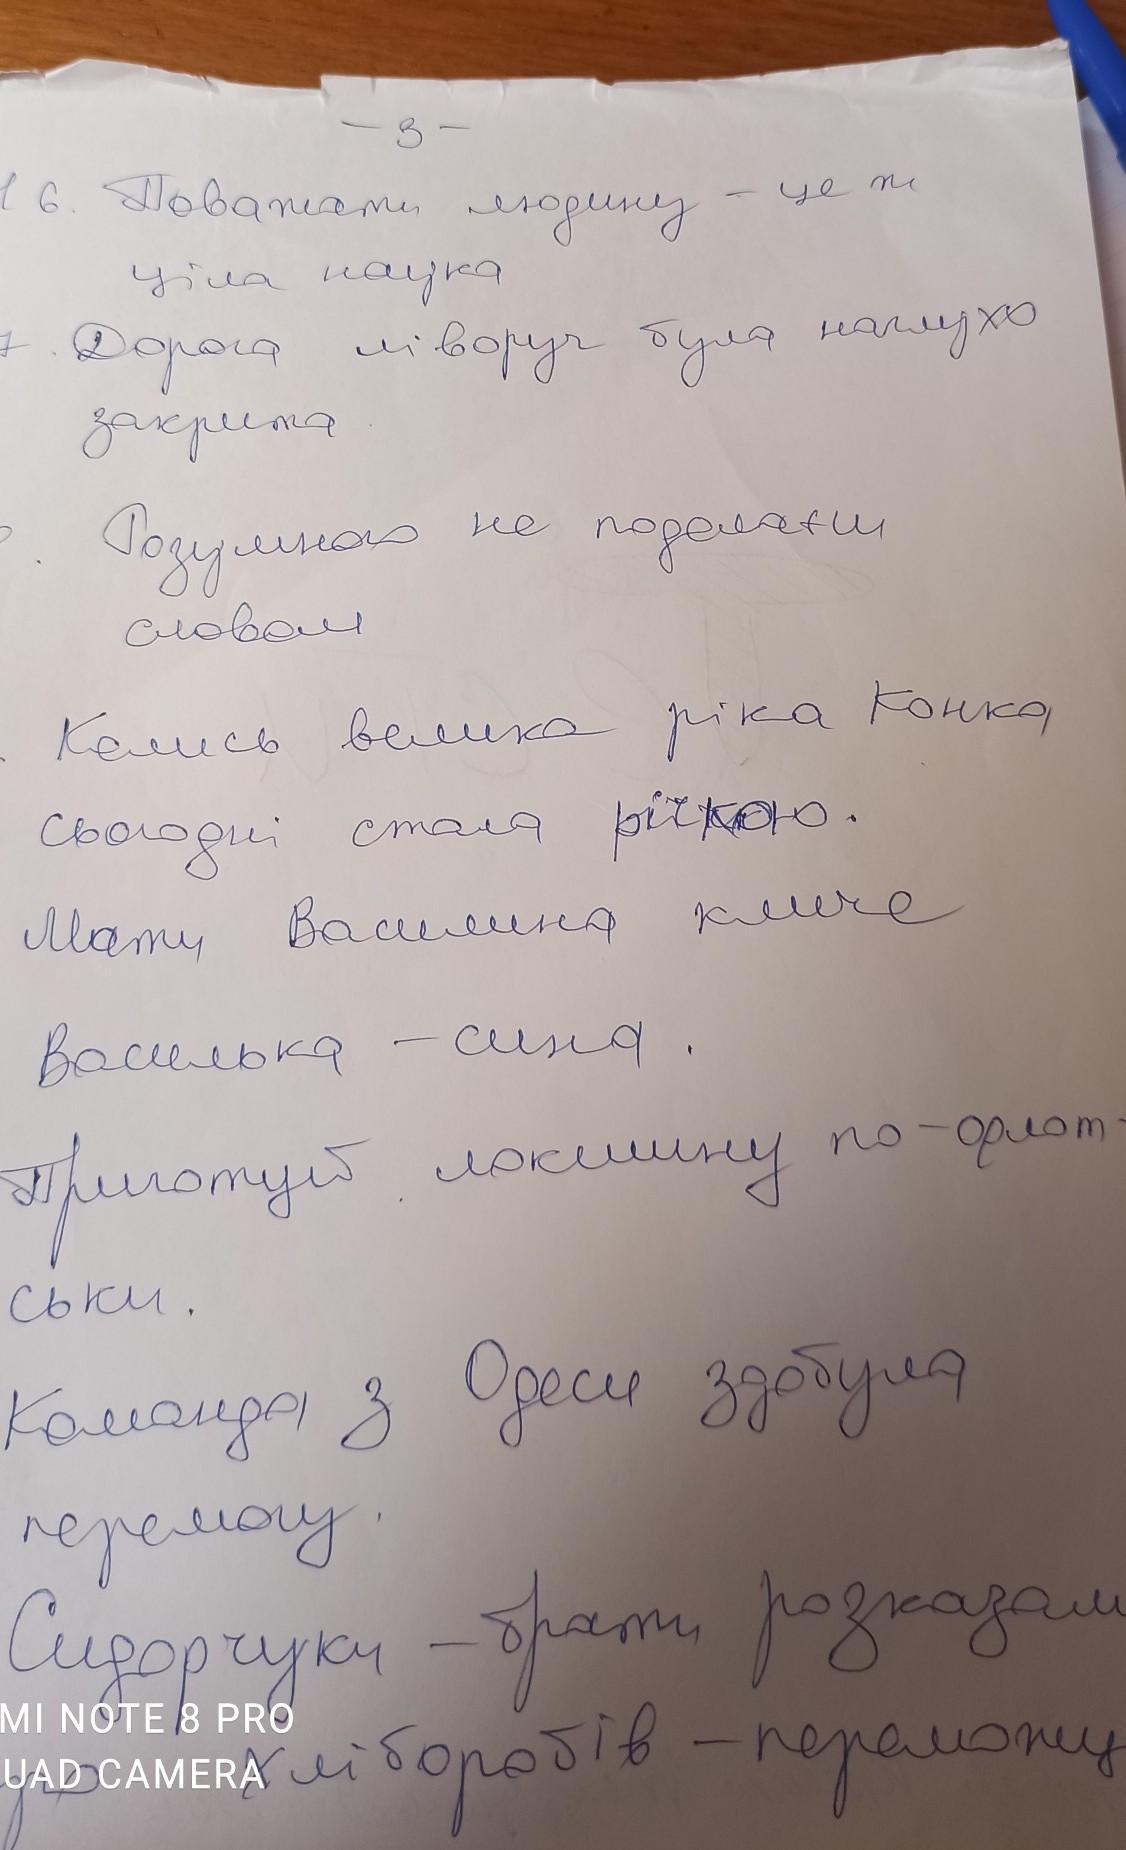 - 3 -
16. Поважати людину - це ж
ціла наука
7. Дорога ліворуч була наглухо
закрита.
Розумного не подолати
словом
Колись велика ріка Конка,
сьогодні стала річкою.
Мати Василина кличе
Василька - сина.
Приготуй локшину по-флот-
ськи.
Команда з Одеси здобула
перемогу.
Сидорчуки - брати розказали
про хліборобів - переможц
MI NOTE 8 PRO
UAD CAMERA